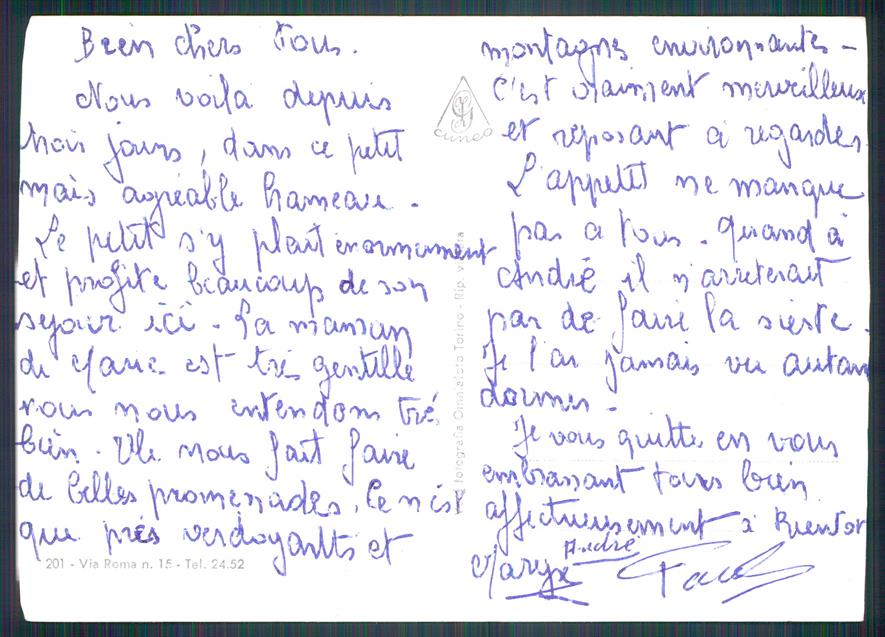 Bien chers Tous.
Nous voila depuis
trois jours, dans ce petit
mais agréable hameau.
Le petit s'y plait enormement
et profite beaucoup de son
sejour ici. La maman
de Marie est trés gentille
nous nous entendons trés
bien. Elle nous fait faire
de belles promenades. Ce n'est
que prés verdoyants et
201 - Via Roma n. 15 - Tel. 24.52
CUNEO
Fotografia Torino - Rip. vietata
montagnes environnantes -
C'est vraiment merveilleux
et reposant à regarder.
L'appetit ne manque
pas a tous. Quand à
André il n'arreterait
pas de faire la sieste.
Je l'ai jamais vu autant
dormir.
Je vous quitte en vous
embrassant tous bien
affectueusement à Bientot
André
Maryse